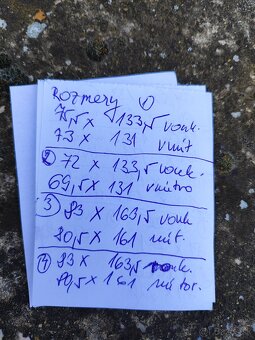 Rozmery ①
75,5 x 133,5 vonk.
73 x 131 vnút
② 72 x 133,5 vonk.
69,5 x 131 vnútro
③ 83 x 163,5 vonk
80,5 x 161 nút.
④ 83 x 163,5
80,5 x 161 nútor.